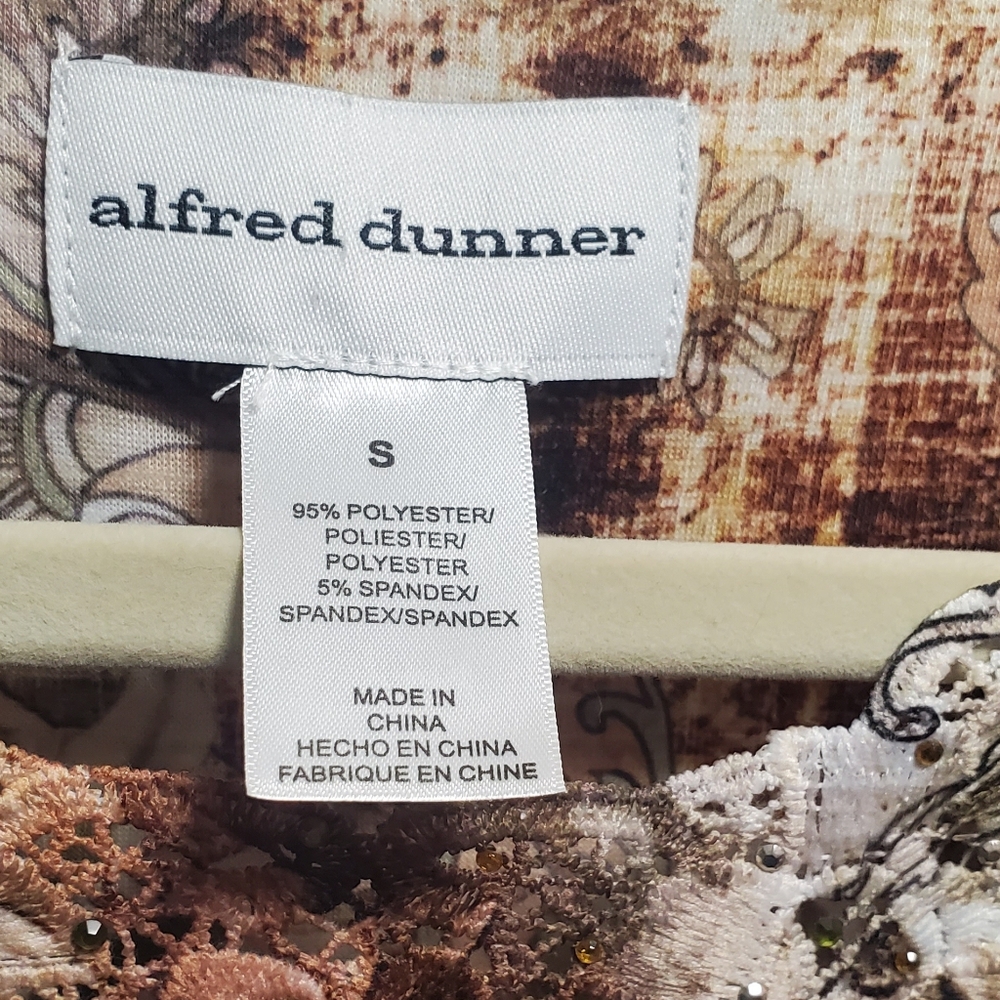 alfred dunner
S
95% POLYESTER/
POLIESTER/
POLYESTER
5% SPANDEX/
SPANDEX/SPANDEX
MADE IN
CHINA
HECHO EN CHINA
FABRIQUE EN CHINE